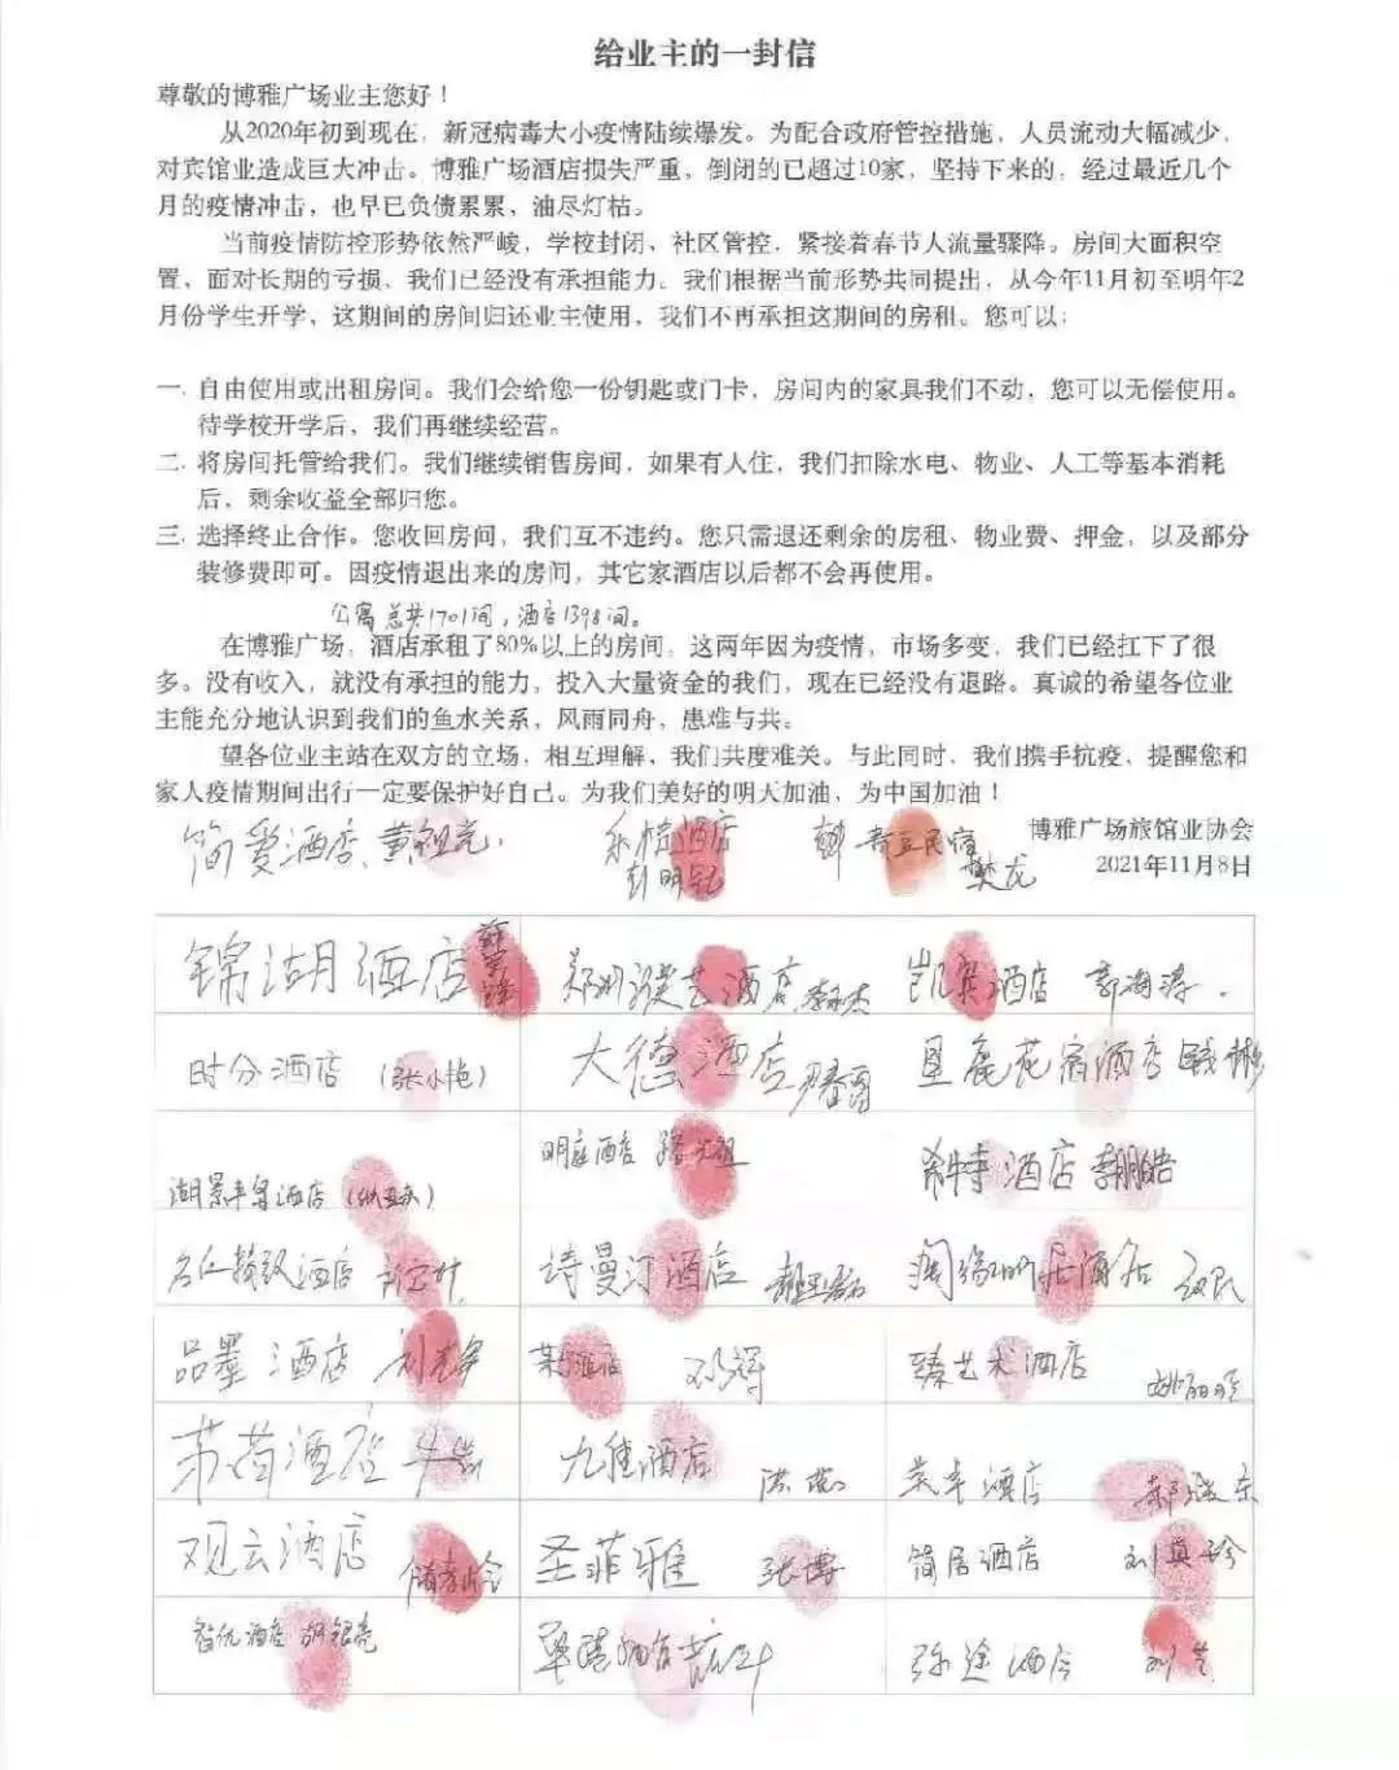 给业主的一封信
尊敬的博雅广场业主您好！
从2020年初到现在，新冠病毒大小疫情陆续爆发。为配合政府管控措施，人员流动大幅减少，
对宾馆业造成巨大冲击。博雅广场酒店损失严重，倒闭的已超过10家，坚持下来的，经过最近几个
月的疫情冲击，也早已负债累累，油尽灯枯。
当前疫情防控形势依然严峻，学校封闭、社区管控，紧接着春节人流量骤降。房间大面积空
置，面对长期的亏损，我们已经没有承担能力。我们根据当前形势共同提出，从今年11月初至明年2
月份学生开学，这期间的房间归还业主使用，我们不再承担这期间的房租。您可以：
一. 自由使用或出租房间。我们会给您一份钥匙或门卡，房间内的家具我们不动，您可以无偿使用。
待学校开学后，我们再继续经营。
二. 将房间托管给我们。我们继续销售房间，如果有人住，我们扣除水电、物业、人工等基本消耗
后，剩余收益全部归您。
三. 选择终止合作。您收回房间，我们互不违约。您只需退还剩余的房租、物业费、押金，以及部分
装修费即可。因疫情退出来的房间，其它家酒店以后都不会再使用。
公寓总共1701间，酒店1398间。
在博雅广场，酒店承租了80%以上的房间，这两年因为疫情，市场多变，我们已经扛下了很
多。没有收入，就没有承担的能力，投入大量资金的我们，现在已经没有退路。真诚的希望各位业
主能充分地认识到我们的鱼水关系，风雨同舟，患难与共。
望各位业主站在双方的立场，相互理解，我们共度难关。与此同时，我们携手抗疫，提醒您和
家人疫情期间出行一定要保护好自己。为我们美好的明天加油，为中国加油！
博雅广场旅馆业协会
2021年11月8日
简爱酒店 酒店 民宿 樊龙
锦湖酒店 酒店 凯宾酒店
时分酒店（张小艳） 大德酒店 花宿酒店
明庭酒店 希特酒店
湖景 酒店
酒店 诗曼汀酒店
品墨酒店 臻艺术酒店
酒店 酒店 酒店
观云酒店 圣菲雅 张博 简居酒店
智优酒店 胡银亮 弥途酒店